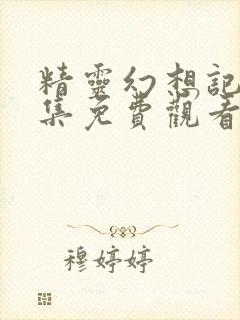 精靈幻想記
集免費觀看
穆婷婷